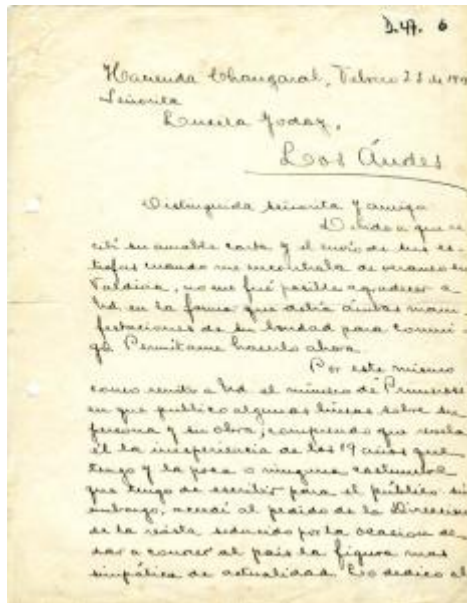 D.47. 6
Hacienda Chañgaral, Febrero 23 de 19
Señorita
Lucila Godoy,
Los Ándes
Distinguida señorita y amiga
Debido a que re
cibí su amable carta y el envío de sus es-
trofas cuando me encontraba de veraneo en
Valdivia, no me fué posible agradecer a
Ud. en la forma que debía ámbas mani
festaciones de su bondad para conmi
go. Permítame hacerlo ahora.
Por este mismo
correo remito a Ud. el número de Primerose
en que publico algunas líneas sobre su
persona y su obra; comprendo que revela
él la inesperiencia de los 19 años que
tengo y la poca o ninguna costumbre
que tengo de escribir para el público sin
embargo, accedí al pedido de la Direccion
de la revista seducido por la ocasion de
dar a conocer al país la figura mas
simpática de actualidad. Lo dedico al